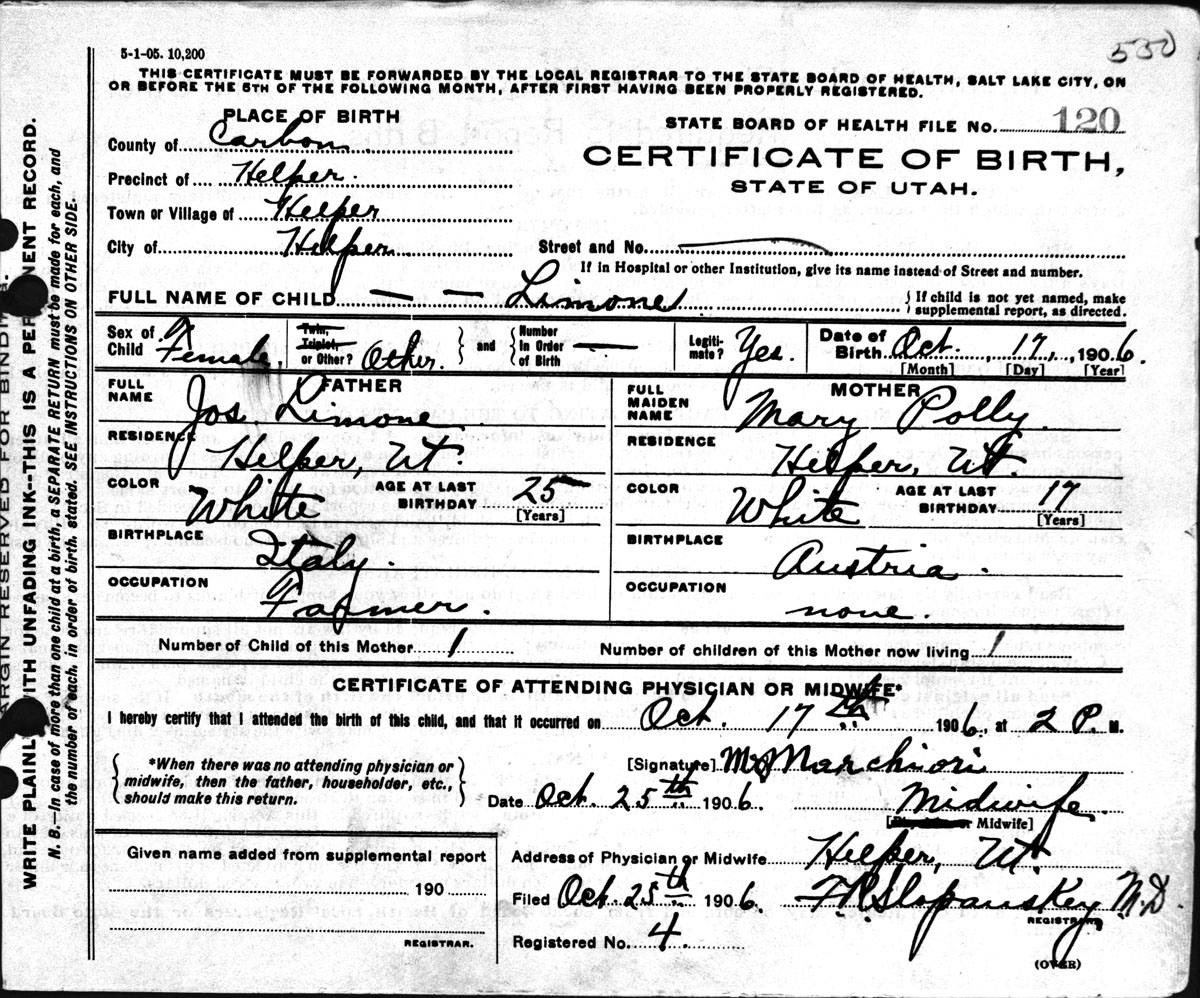 550
5-1-05. 10,200
THIS CERTIFICATE MUST BE FORWARDED BY THE LOCAL REGISTRAR TO THE STATE BOARD OF HEALTH, SALT LAKE CITY, ON
OR BEFORE THE 5TH OF THE FOLLOWING MONTH, AFTER FIRST HAVING BEEN PROPERLY REGISTERED.
PLACE OF BIRTH
County of Carbon
Precinct of Helper.
Town or Village of Helper
City of Helper
STATE BOARD OF HEALTH FILE No. 120
CERTIFICATE OF BIRTH,
STATE OF UTAH.
Street and No.
If in Hospital or other Institution, give its name instead of Street and number.
FULL NAME OF CHILD — — — Limone
If child is not yet named, make
supplemental report, as directed.
Sex of Child Female.
Twin, Triplet, or Other? Other.
and
Number in Order of Birth —
Legiti-mate? Yes.
Date of Birth Oct. , 17, , 1906.
[Month] [Day] [Year]
FATHER
FULL NAME Jos Limone
RESIDENCE Helper, Ut.
COLOR White AGE AT LAST BIRTHDAY 25
[Years]
BIRTHPLACE Italy.
OCCUPATION Farmer.
MOTHER
FULL MAIDEN NAME Mary Polly.
RESIDENCE Helper, Ut.
COLOR White AGE AT LAST BIRTHDAY 17
[Years]
BIRTHPLACE Austria.
OCCUPATION none.
Number of Child of this Mother 1 Number of children of this Mother now living 1
CERTIFICATE OF ATTENDING PHYSICIAN OR MIDWIFE*
I hereby certify that I attended the birth of this child, and that it occurred on Oct. 17th 1906, at 2 P. M.
*When there was no attending physician or
midwife, then the father, householder, etc.,
should make this return.
[Signature] Marchiori
Date Oct. 25th 1906. Midwife
or Midwife]
Address of Physician or Midwife Helper, Ut.
Filed Oct. 25th 1906. M.D.
REGISTRAR.
Registered No. 4.
(OVER)
Given name added from supplemental report
190
REGISTRAR.
MARGIN RESERVED FOR BINDING.
WRITE PLAINLY WITH UNFADING INK--THIS IS A PERMANENT RECORD.
N. B. In case of more than one child at a birth, a SEPARATE RETURN must be made for each, and
the number of each, in order of birth, stated. SEE INSTRUCTIONS ON OTHER SIDE.